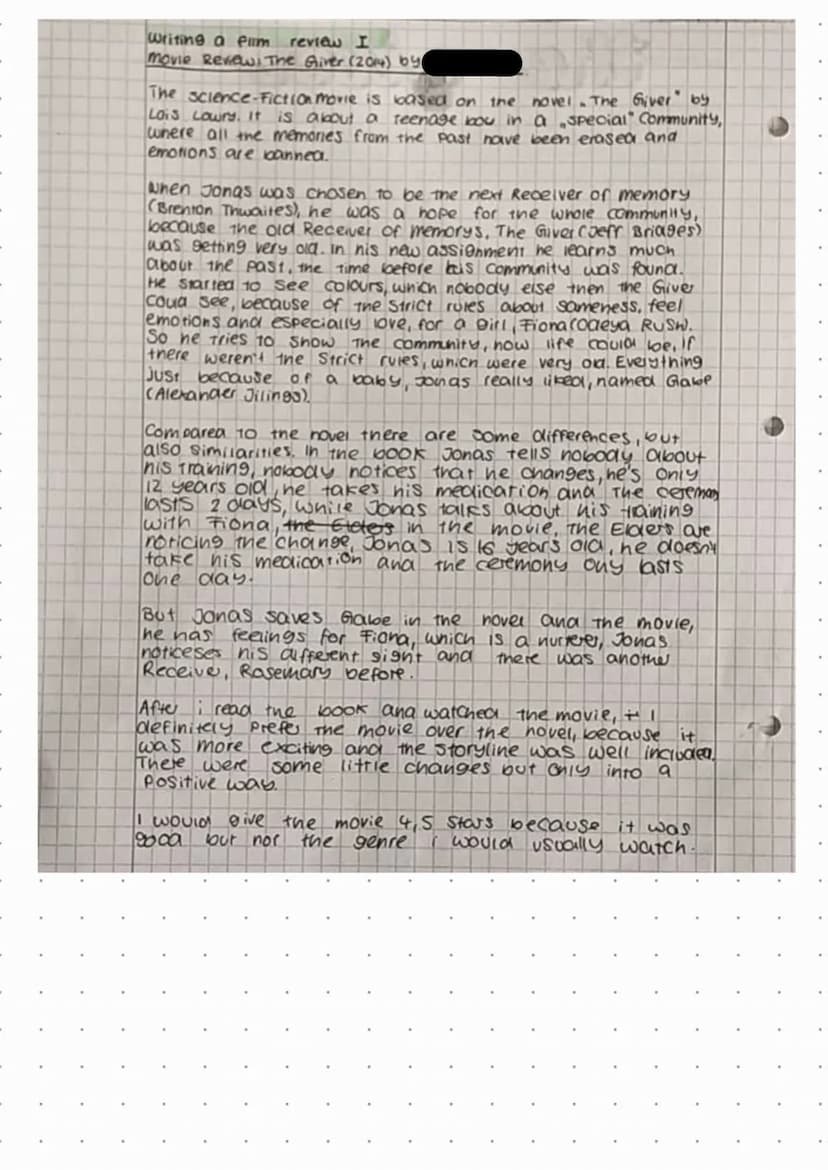 Writing a film review I
Movie Review: The Giver (2014) by
The science-fiction movie is based on the novel „The Giver" by
Lois Lowry. It is about a teenage boy in a „special" Community,
where all the memories from the past have been erased and
emotions are banned.
When Jonas was chosen to be the next Receiver of memory
(Brenton Thwaites), he was a hope for the whole community,
because the old Receiver of memorys, The Giver (Jeff Bridges)
was getting very old. In his new assignment he learns much
about the past, the time before his community was found.
He started to see colours, which nobody else then the Giver
coud see, because of the strict rules about sameness, feel
emotions and especially love, for a girl, Fiona (Odeya Rush).
So he tries to show the community, how life could be, if
there weren't the strict rules, which were very old. Everything
just because of a baby, Jonas really liked, named Gabe
(Alexander Jilings).
Compared to the novel there are some differences, but
also similarities. In the book Jonas tells nobody about
his training, nobody notices that he changes, he's only
12 years old, he takes his medication and the ceremony
lasts 2 days, while Jonas talks about his training
with Fiona, the Elders in the movie, the Elders are
noticing the change, Jonas is 16 years old, he doesn't
take his medication and the ceremony ony lasts
one day.
But Jonas saves Gabe in the novel and the movie,
he has feelings for Fiona, which is a nurterer, Jonas
noticeses his different sight and there was another
Receive, Rosemary before.
After i read the book and watched the movie, I
definitely prefer the movie over the novel, because it
was more exciting and the storyline was well included.
There were some little changes but only into a
positive way.
I would give the movie 4,5 stars because it was
good but not the genre i would usually watch.